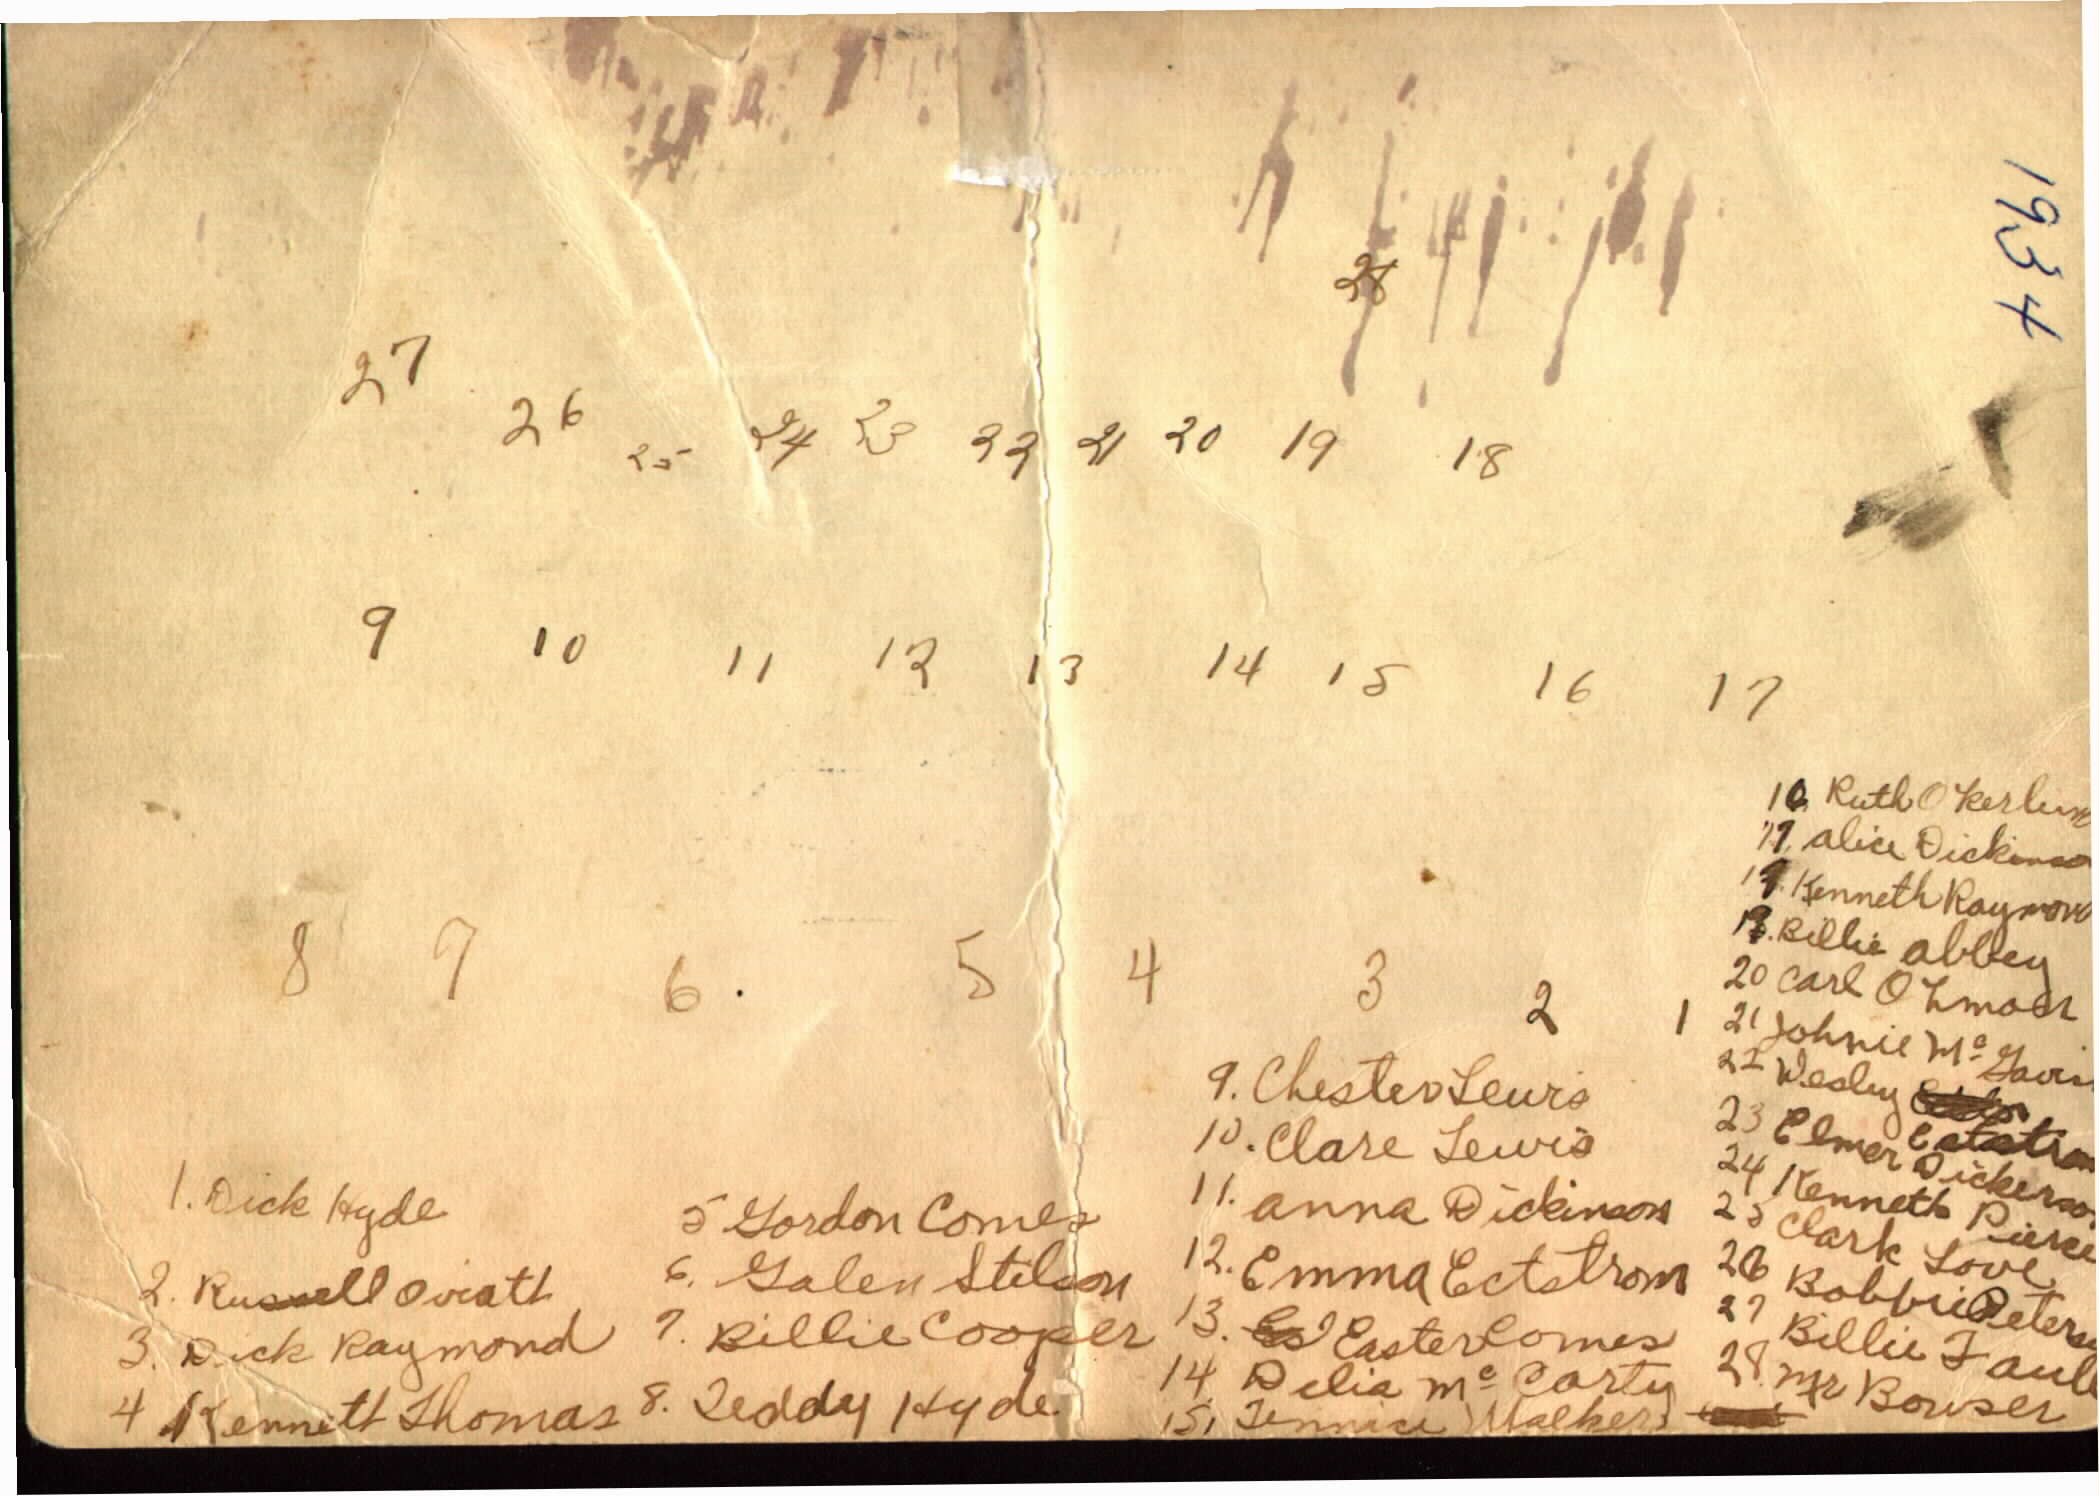 1934
28
27 26 25 24 23 22 21 20 19 18
9 10 11 12 13 14 15 16 17
8 7 6. 5 4 3 2 1
1. Dick Hyde
2. Russell Oviatt
3. Dick Raymond
4 Kennett Thomas
5 Gordon Comes
6. Galen Stilson
7. Billie Cooper
8. Teddy Hyde
9. Chester Lewis
10. Clare Lewis
11. Anna Dickinson
12. Emma Ectstrom
13. Easter Comes
14 Delia Mc Carty
15, Walker
16 Ruth Okerlun
17. Alice Dickinson
Kenneth Raymond
19. Billie Abbey
20 Carl
21 Johnie Mc
22 Wesley Ectstrom
23 Elmer Dickerson
24 Kenneth Pierce
25 Clark Love
26 Bobbie Peters
27 Billie Faul
28 Mr Bowser